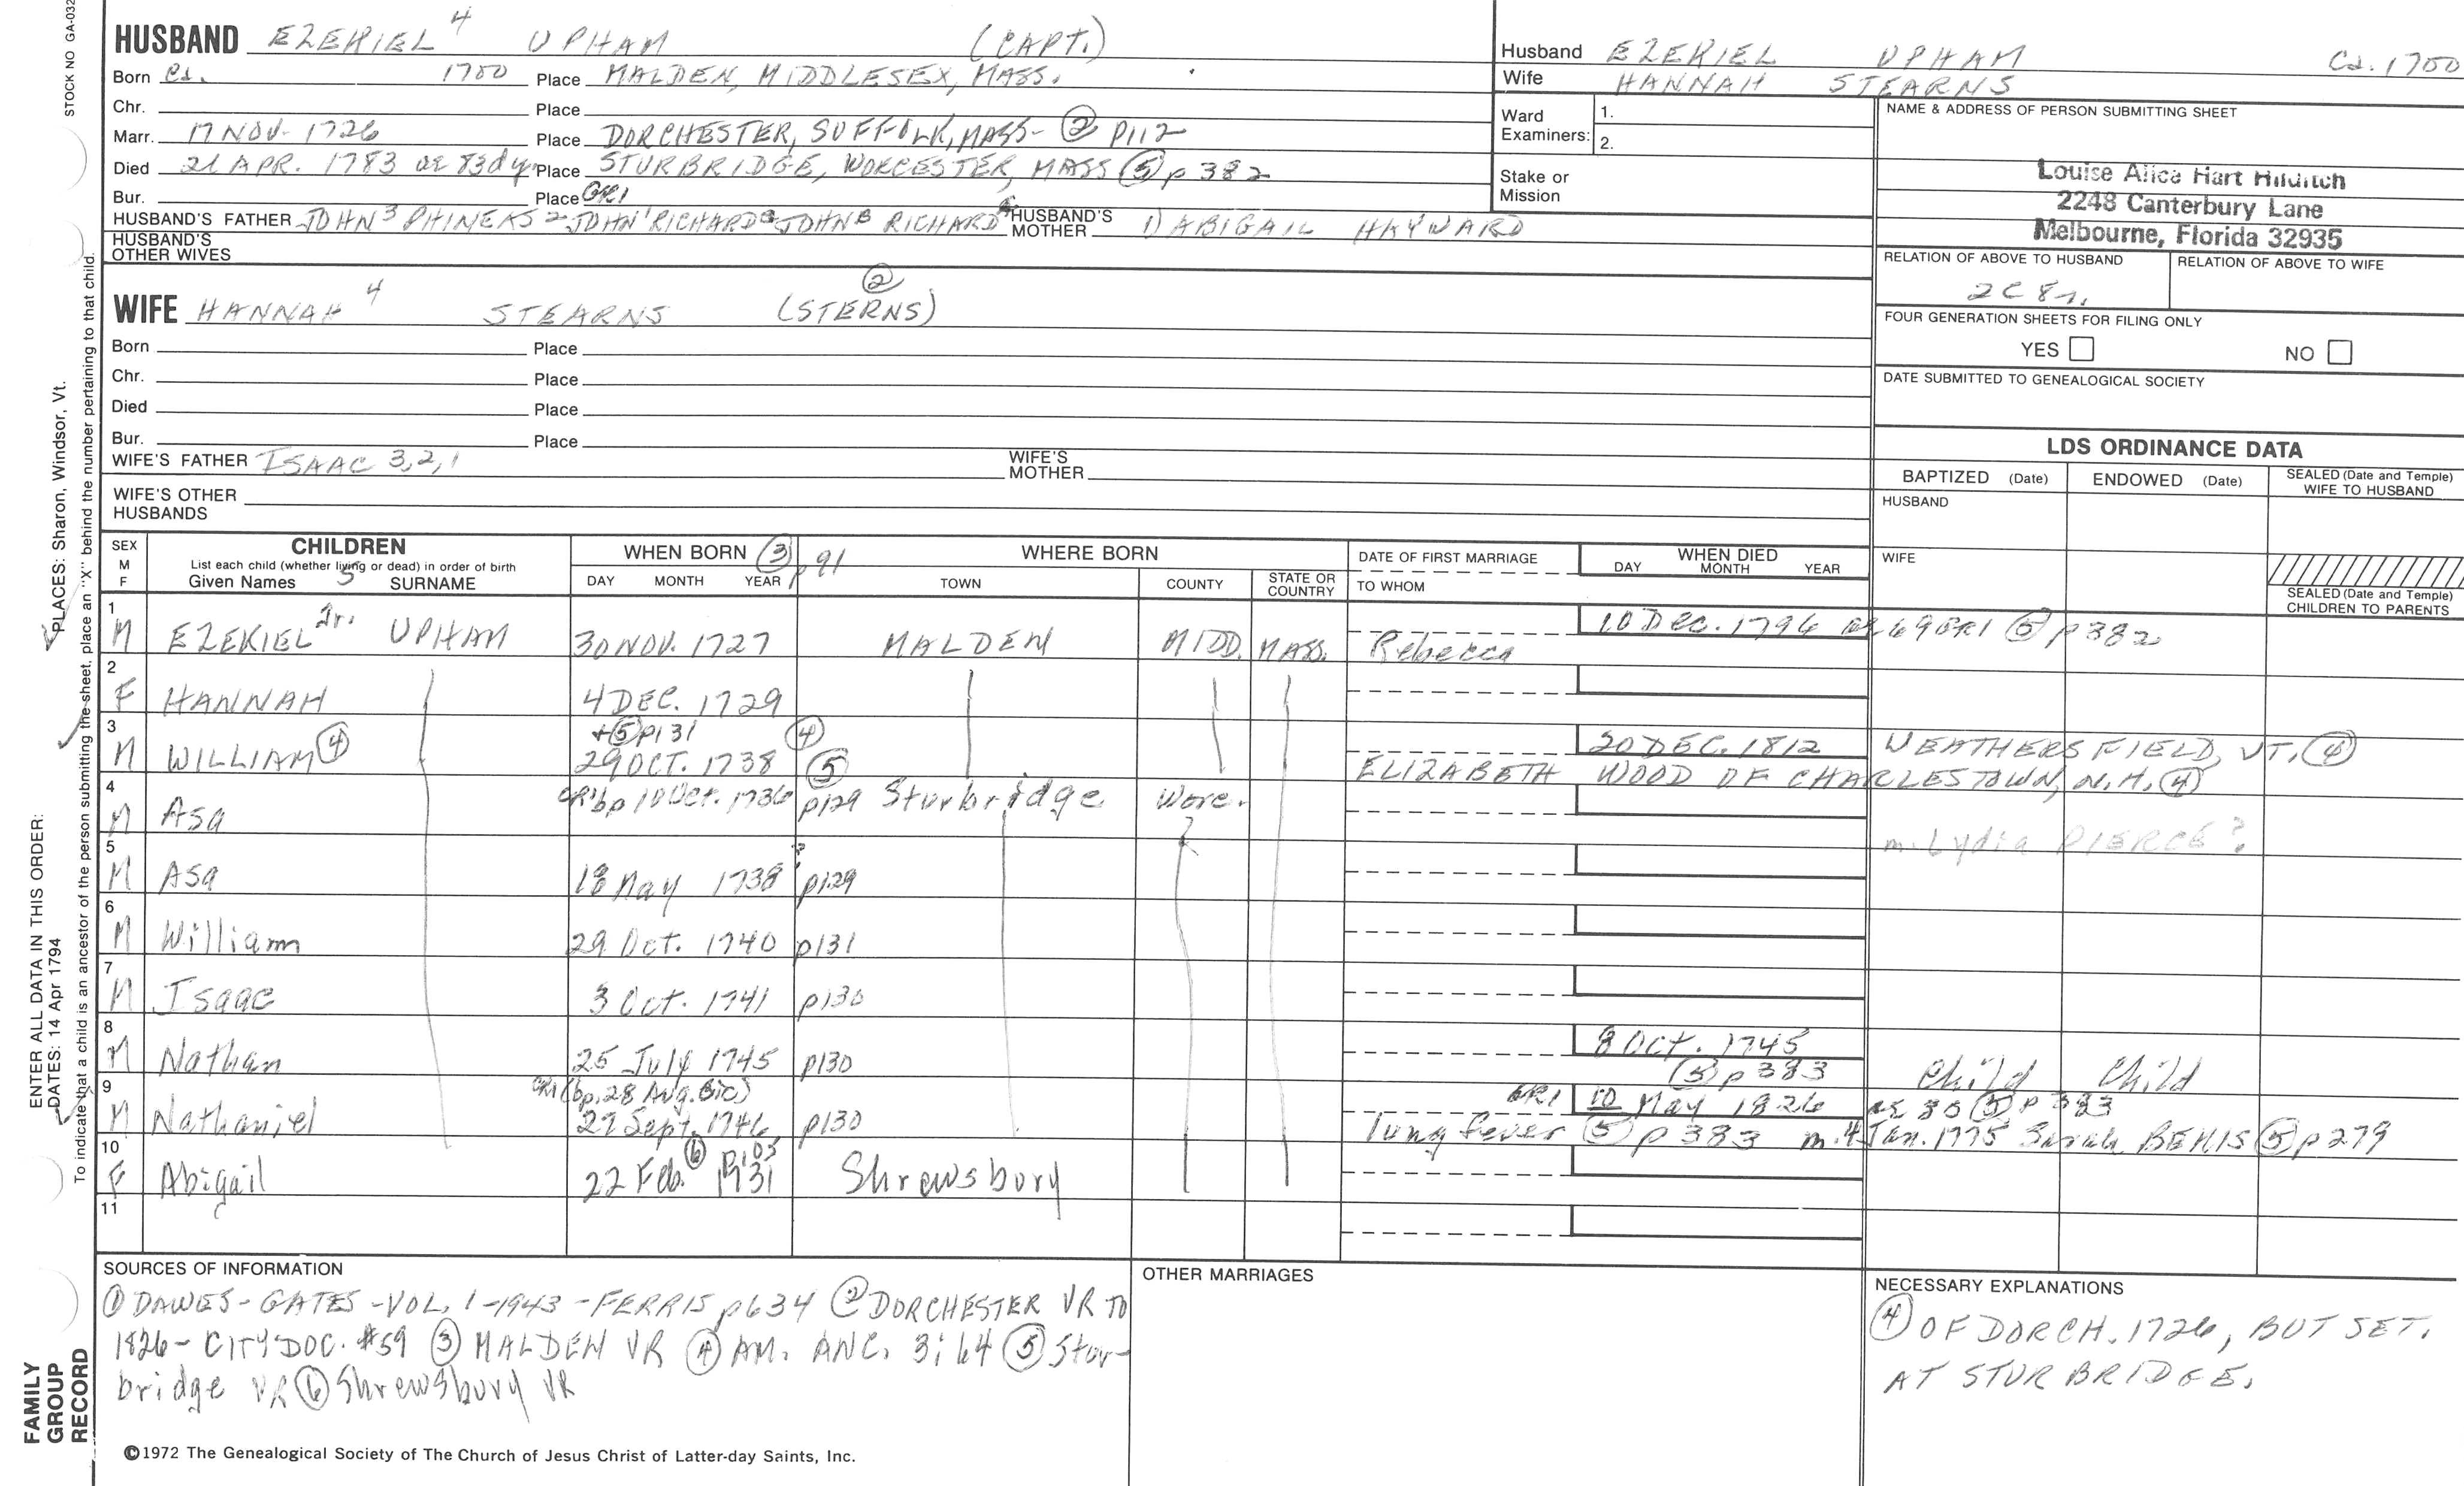 STOCK NO GA-032
HUSBAND EZEKIEL 4 UPHAM (CAPT.)
Born Ca. 1700 Place MALDEN, MIDDLESEX, MASS.
Chr. Place
Marr. 17 NOV. 1726 Place DORCHESTER, SUFFOLK, MASS- ② P112
Died 21 APR. 1783 ae 83d yr Place STURBRIDGE, WORCESTER, MASS ⑤ p 382
Bur. Place GR1
HUSBAND'S FATHER JOHN 3 PHINEAS 2 JOHN 1 RICHARD JOHN B RICHARD HUSBAND'S MOTHER 1) ABIGAIL HAYWARD
HUSBAND'S OTHER WIVES
Husband EZEKIEL UPHAM Ca. 1700
Wife HANNAH STEARNS
Ward Examiners: 1.
2.
Stake or Mission
NAME & ADDRESS OF PERSON SUBMITTING SHEET
Louise Alice Hart Hilditch
2248 Canterbury Lane
Melbourne, Florida 32935
RELATION OF ABOVE TO HUSBAND RELATION OF ABOVE TO WIFE
2C 8r.
FOUR GENERATION SHEETS FOR FILING ONLY
YES NO
DATE SUBMITTED TO GENEALOGICAL SOCIETY
WIFE HANNAH 4 STEARNS (STERNS) ②
Born Place
Chr. Place
Died Place
Bur. Place
WIFE'S FATHER ISAAC 3,2,1 WIFE'S MOTHER
WIFE'S OTHER HUSBANDS
LDS ORDINANCE DATA
BAPTIZED (Date) ENDOWED (Date) SEALED (Date and Temple) WIFE TO HUSBAND
HUSBAND
WIFE
SEALED (Date and Temple) CHILDREN TO PARENTS
SEX M F
CHILDREN
List each child (whether living or dead) in order of birth
Given Names 5 SURNAME
WHEN BORN ③ p 91
DAY MONTH YEAR
WHERE BORN
TOWN COUNTY STATE OR COUNTRY
DATE OF FIRST MARRIAGE
TO WHOM
WHEN DIED
DAY MONTH YEAR
1 M EZEKIEL Jr. UPHAM 30 NOV. 1727 MALDEN MIDD. MASS. Rebecca 10 Dec. 1796 ae 69 GR1 ⑤ p 382
2 F HANNAH 4 DEC. 1729
3 M WILLIAM ④ + ⑤ p131 29 OCT. 1738 ④ ⑤ 20 DEC. 1812 WEATHERSFIELD, VT. ④
ELIZABETH WOOD OF CHARLESTOWN, N.H. ④
4 M Asa CR1 bp 10 Oct. 1736 p129 Sturbridge Worc.
m. Lydia PIERCE?
5 M Asa 18 May 1738 ? p129
6 M William 29 Oct. 1740 p131
7 M Isaac 3 Oct. 1741 p130
8 M Nathan 25 July 1745 p130 8 Oct. 1745 ⑤ p 383 Child Child
9 M Nathaniel CR1 (bp. 28 Aug. sic) 27 Sept. 1746 p130 GR1 10 May 1826 ae 80 ⑤ p 383
lung fever ⑤ p 383 m. 4 Jan. 1775 Sarah BEMIS ⑤ p 279
10 F Abigail 22 Feb. 1731 ⑥ p105 Shrewsbury
11
SOURCES OF INFORMATION
① DAWES-GATES-VOL. 1-1943-FERRIS p634 ② DORCHESTER VR TO
1826- CITY DOC. #59 ③ MALDEN VR ④ AM. ANC. 3:64 ⑤ Stur-
bridge VR ⑥ Shrewsbury VR
OTHER MARRIAGES
NECESSARY EXPLANATIONS
④ OF DORCH. 1726, BUT SET.
AT STURBRIDGE.
©1972 The Genealogical Society of The Church of Jesus Christ of Latter-day Saints, Inc.
FAMILY GROUP RECORD
ENTER ALL DATA IN THIS ORDER:
DATES: 14 Apr 1794
PLACES: Sharon, Windsor, Vt.
To indicate that a child is an ancestor of the person submitting the sheet, place an "X" behind the number pertaining to that child.